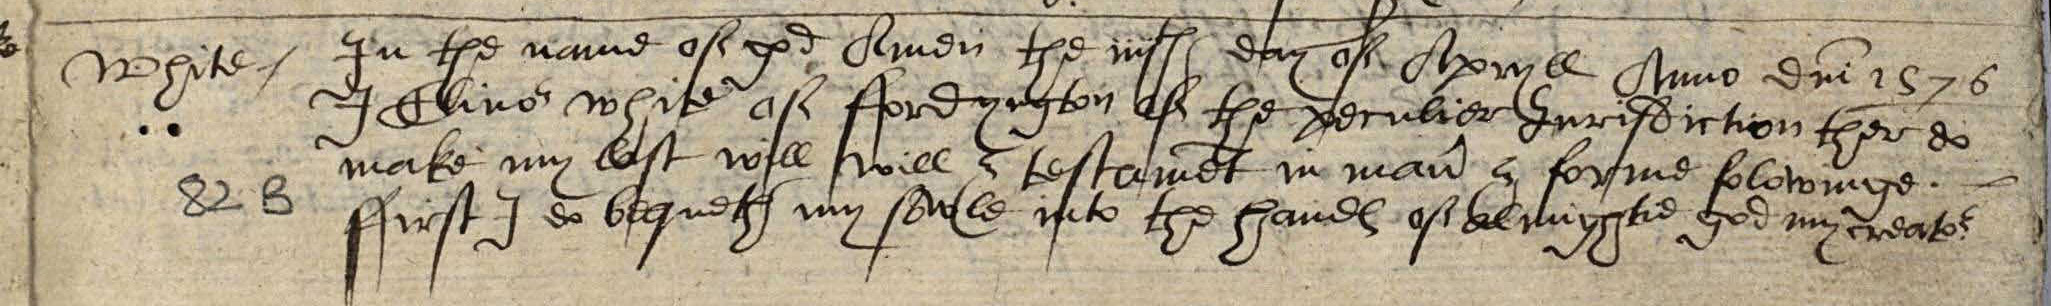 White
In the name of god Amen the iiijth day of Apryll Anno dni 1576
I Elinor white of ffordyngton of the peculier Jurisdiction ther do
make my last will will & testament in man & forme folowinge.
82 B
ffirst I do bequeth my sowle into the hands of almyghtie god my creator